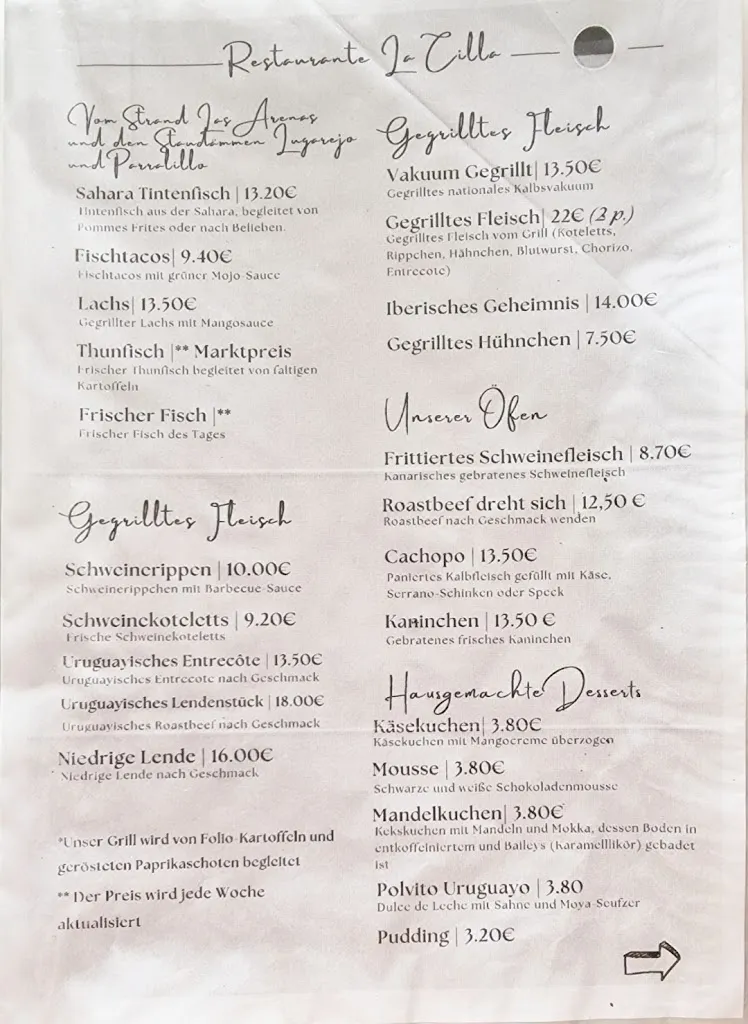 Restaurante La Cilla
Vom Strand Las Arenas
und den Staudämmen Lugarejo
und Parralillo
Sahara Tintenfisch | 13.20€
Tintenfisch aus der Sahara, begleitet von
Pommes Frites oder nach Belieben.
Fischtacos| 9.40€
Fischtacos mit grüner Mojo-Sauce
Lachs| 13.50€
Gegrillter Lachs mit Mangosauce
Thunfisch |** Marktpreis
Frischer Thunfisch begleitet von faltigen
Kartoffeln
Frischer Fisch |**
Frischer Fisch des Tages
Gegrilltes Fleisch
Schweinerippen | 10.00€
Schweinerippchen mit Barbecue-Sauce
Schweinekoteletts | 9.20€
Frische Schweinekoteletts
Uruguayisches Entrecôte | 13.50€
Uruguayisches Entrecote nach Geschmack
Uruguayisches Lendenstück | 18.00€
Uruguayisches Roastbeef nach Geschmack
Niedrige Lende | 16.00€
Niedrige Lende nach Geschmack
*Unser Grill wird von Folio-Kartoffeln und
gerösteten Paprikaschoten begleitet
** Der Preis wird jede Woche
aktualisiert
Gegrilltes Fleisch
Vakuum Gegrillt| 13.50€
Gegrilltes nationales Kalbsvakuum
Gegrilltes Fleisch| 22€ (2 p.)
Gegrilltes Fleisch vom Grill (Koteletts,
Rippchen, Hähnchen, Blutwurst, Chorizo,
Entrecote)
Iberisches Geheimnis | 14.00€
Gegrilltes Hühnchen | 7.50€
Unserer Öfen
Frittiertes Schweinefleisch | 8.70€
Kanarisches gebratenes Schweinefleisch
Roastbeef dreht sich | 12,50 €
Roastbeef nach Geschmack wenden
Cachopo | 13.50€
Paniertes Kalbfleisch gefüllt mit Käse,
Serrano-Schinken oder Speck
Kaninchen | 13.50 €
Gebratenes frisches Kaninchen
Hausgemachte Desserts
Käsekuchen| 3.80€
Käsekuchen mit Mangocreme überzogen
Mousse | 3.80€
Schwarze und weiße Schokoladenmousse
Mandelkuchen| 3.80€
Kekskuchen mit Mandeln und Mokka, dessen Boden in
entkoffeiniertem und Baileys (Karamelllikör) gebadet
ist
Polvito Uruguayo | 3.80
Dulce de Leche mit Sahne und Moya-Seufzer
Pudding | 3.20€